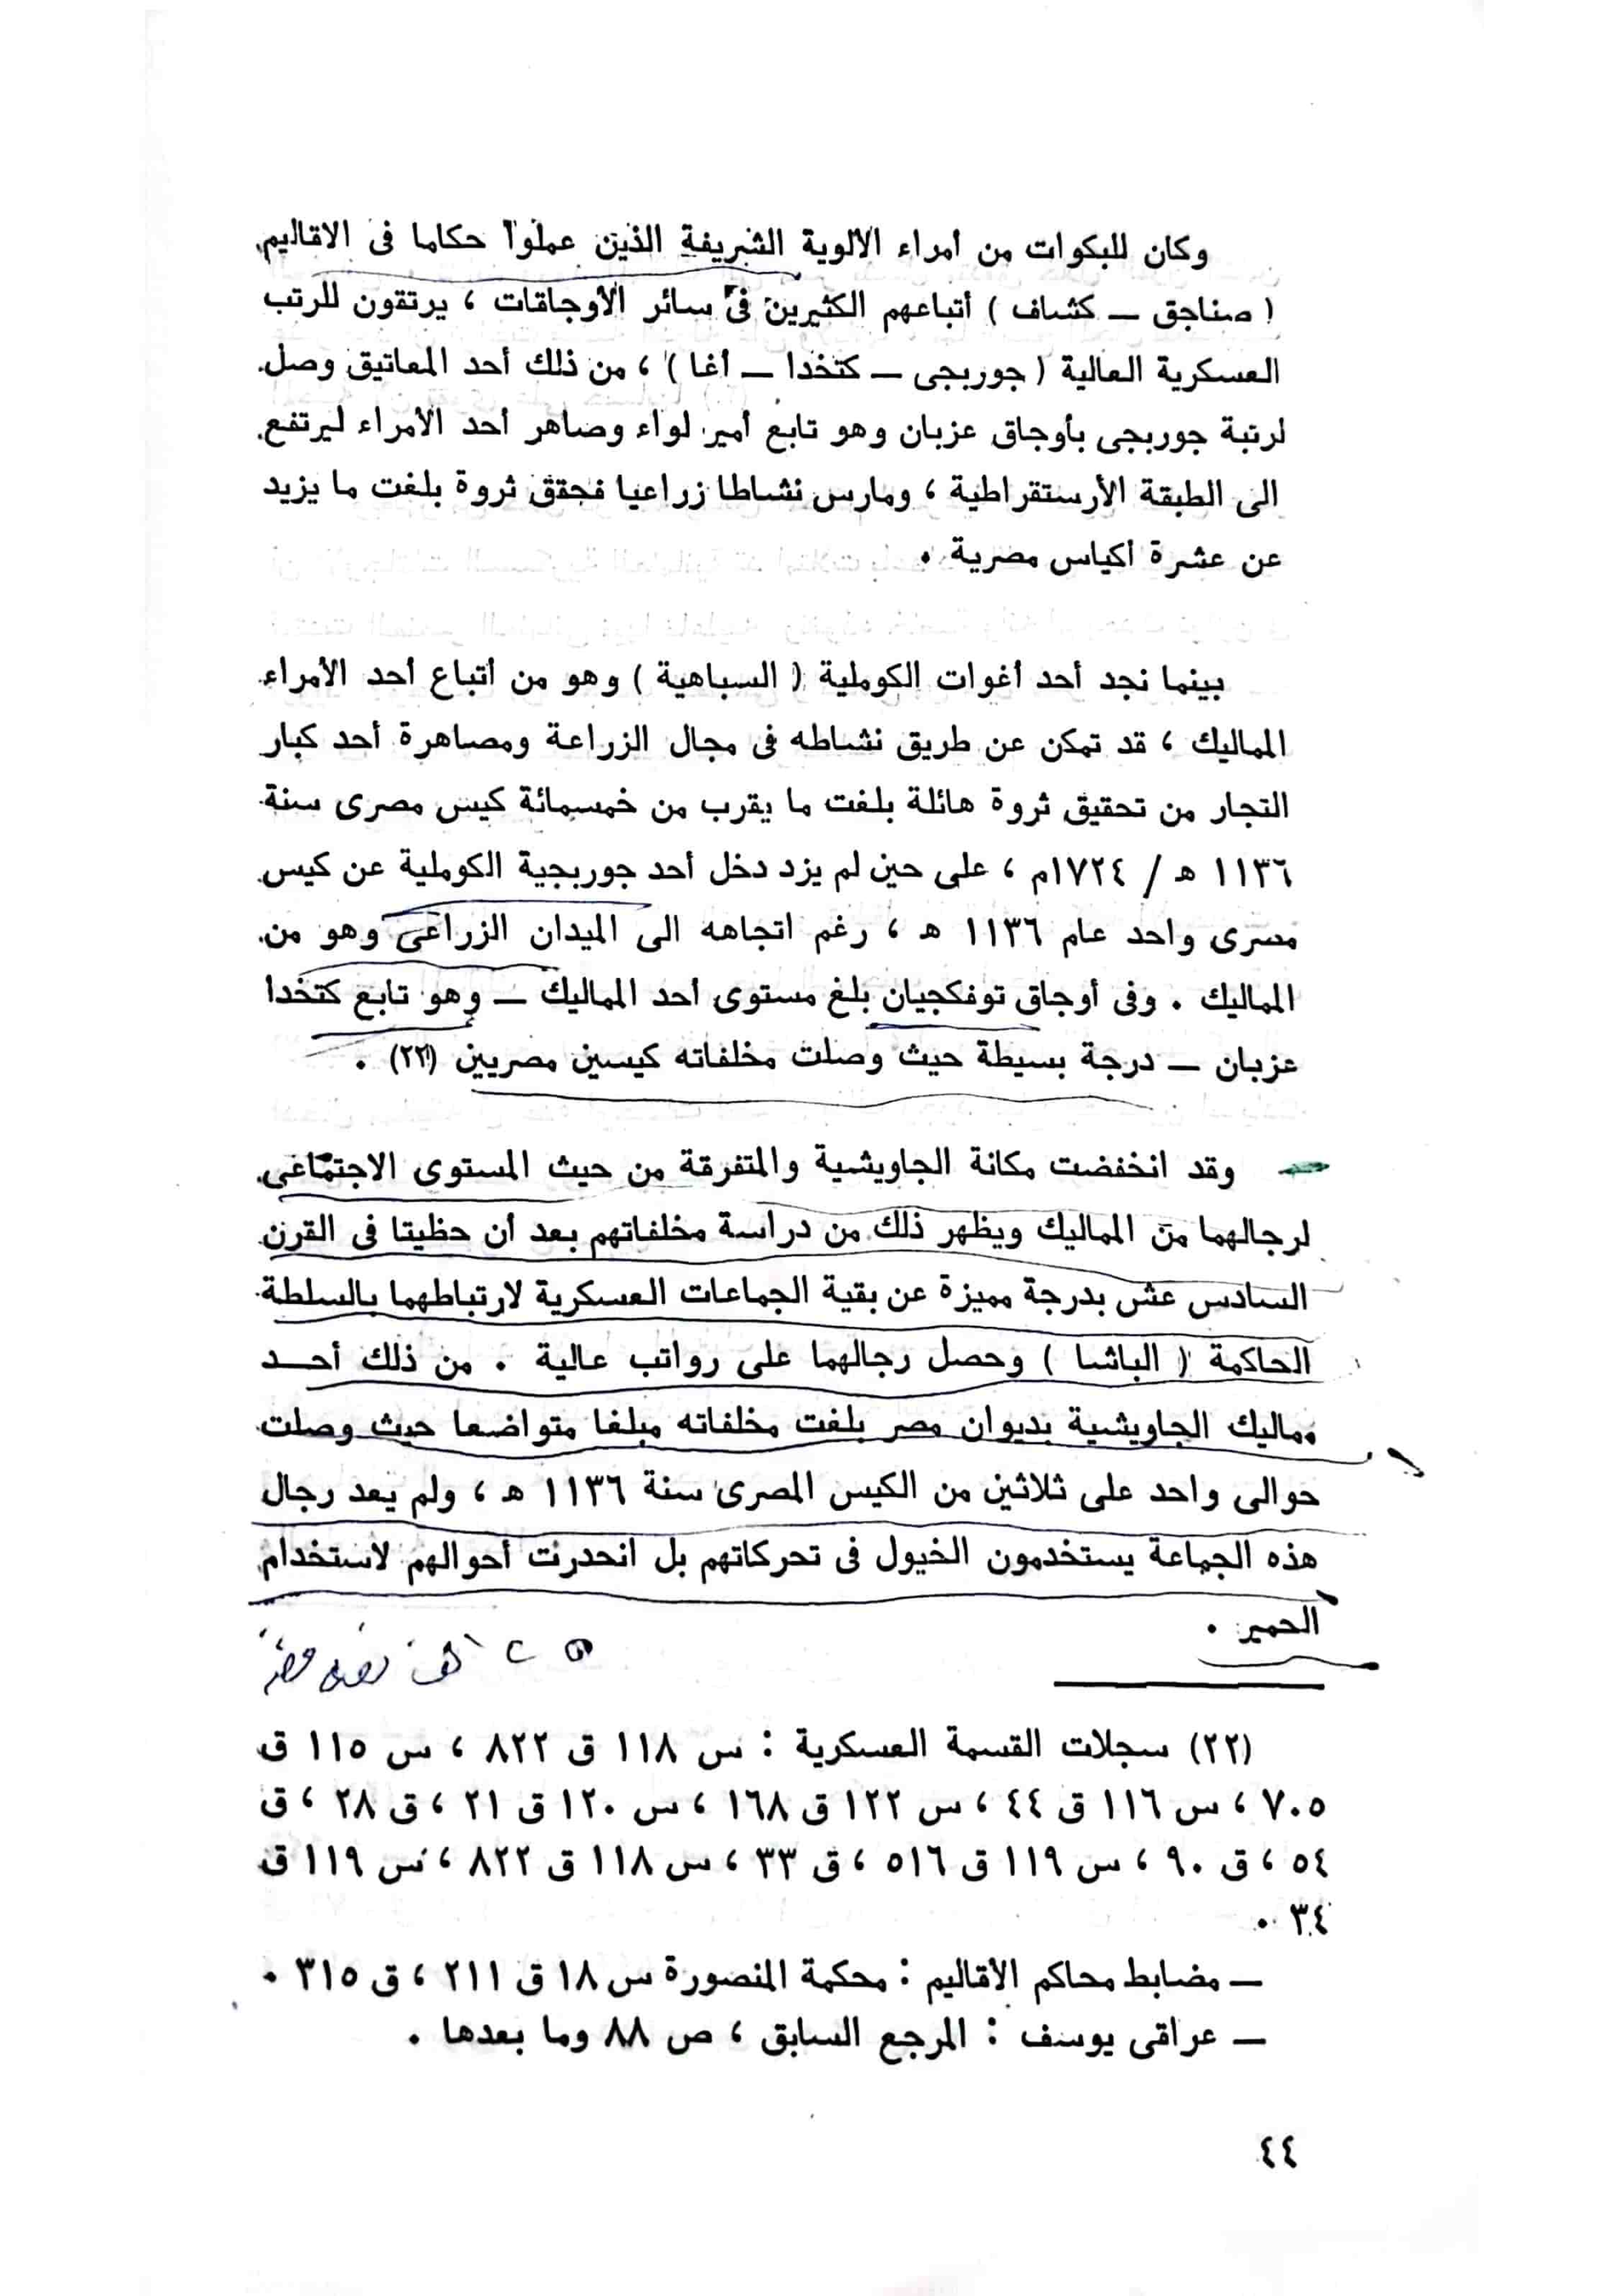 وكان للبكوات من أمراء الألوية الشريفة الذين عملوا حكاما فى الاقاليم
( صناجق ـ كشاف ) أتباعهم الكثيرين فى سائر الأوجاقات ، يرتقون للرتب
العسكرية العالية ( جوربجى ـ كتخدا ـ أغا ) ، من ذلك أحد المعاتيق وصل
لرتبة جوربجى بأوجاق عزبان وهو تابع أمير لواء وصاهر أحد الأمراء ليرتفع
الى الطبقة الأرستقراطية ، ومارس نشاطا زراعيا فحقق ثروة بلغت ما يزيد
عن عشرة أكياس مصرية .
بينما نجد أحد أغوات الكوملية ( السباهية ) وهو من أتباع أحد الأمراء
المماليك ، قد تمكن عن طريق نشاطه فى مجال الزراعة ومصاهرة أحد كبار
التجار من تحقيق ثروة هائلة بلغت ما يقرب من خمسمائة كيس مصرى سنة
١١٣٦ هـ / ١٧٢٤م ، على حين لم يزد دخل أحد جوربجية الكوملية عن كيس
مصرى واحد عام ١١٣٦ هـ ، رغم اتجاهه الى الميدان الزراعى وهو من
المماليك . وفى أوجاق توفكجيان بلغ مستوى أحد المماليك ـ وهو تابع كتخدا
عزبان ـ درجة بسيطة حيث وصلت مخلفاته كيسين مصريين (٢٢) .
وقد انخفضت مكانة الجاويشية والمتفرقة من حيث المستوى الاجتماعى
لرجالهما من المماليك ويظهر ذلك من دراسة مخلفاتهم بعد أن حظيتا فى القرن
السادس عشر بدرجة مميزة عن بقية الجماعات العسكرية لارتباطهما بالسلطة
الحاكمة ( الباشا ) وحصل رجالهما على رواتب عالية . من ذلك أحـــد
مماليك الجاويشية بديوان مصر بلغت مخلفاته مبلغا متواضعا حيث وصلت
حوالى واحد على ثلاثين من الكيس المصرى سنة ١١٣٦ هـ ، ولم يعد رجال
هذه الجماعة يستخدمون الخيول فى تحركاتهم بل انحدرت أحوالهم لاستخدام
الحمير .
(٢٢) سجلات القسمة العسكرية : س ١١٨ ق ٨٢٢ ، س ١١٥ ق
٧٠٥ ، س ١١٦ ق ٤٤ ، س ١٢٢ ق ١٦٨ ، س ١٢٠ ق ٢١ ، ق ٢٨ ، ق
٥٤ ، ق ٩٠ ، س ١١٩ ق ٥١٦ ، ق ٣٣ ، س ١١٨ ق ٨٢٢ ، س ١١٩ ق
٣٤ .
ـ مضابط محاكم الأقاليم : محكمة المنصورة س ١٨ ق ٢١١ ، ق ٣١٥ .
ـ عراقى يوسف : المرجع السابق ، ص ٨٨ وما بعدها .
٤٤